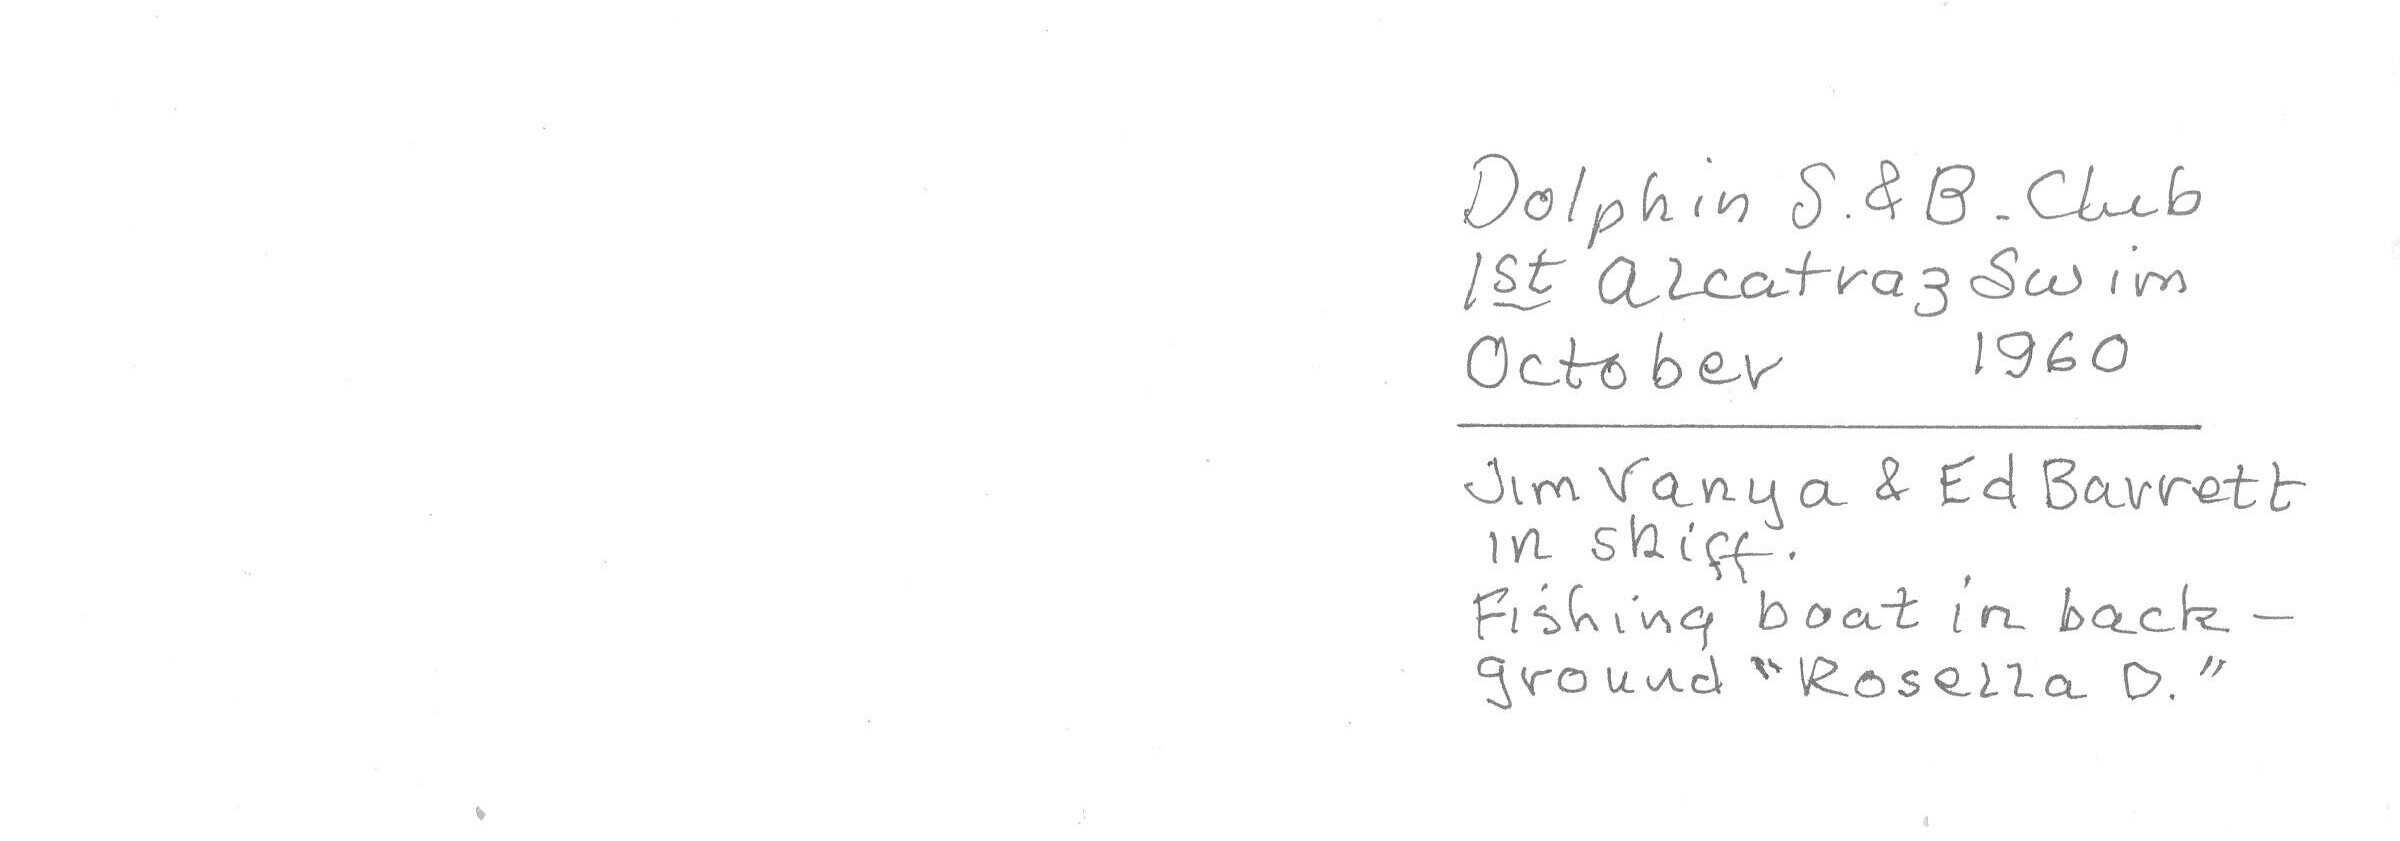 Dolphin S. & B. Club
1st Alcatraz Swim
October 1960
Jim Vanya & Ed Barrett
in skiff.
Fishing boat in back-
ground "Rosella D."